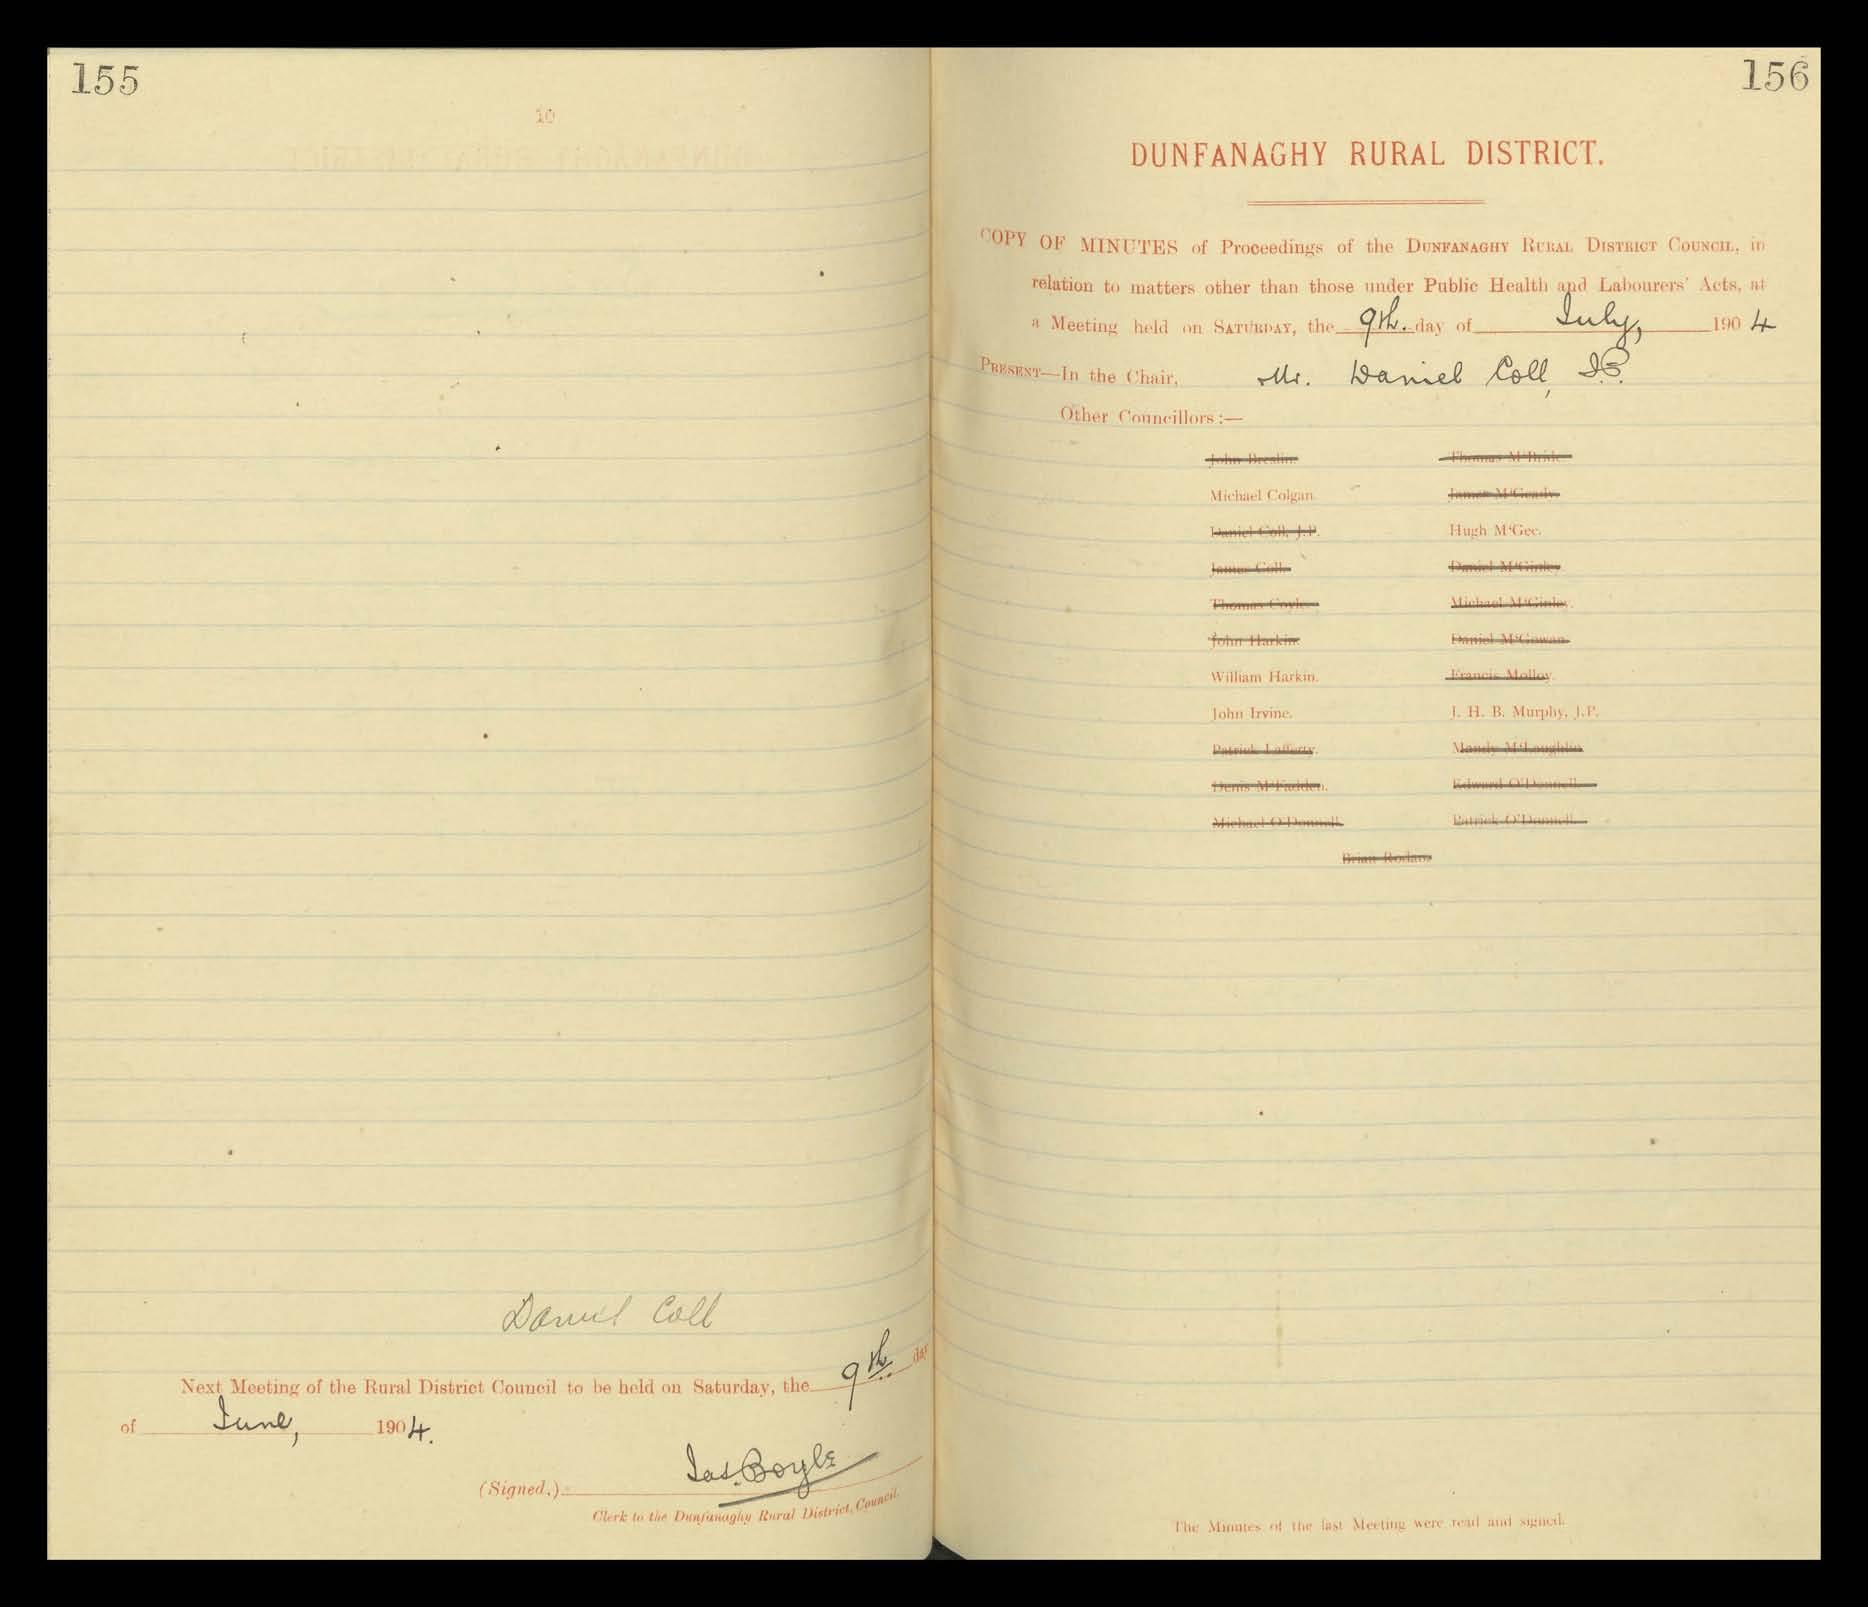 155
10
Daniel Coll
Next Meeting of the Rural District Council to be held on Saturday, the 9th day
of June, 1904.
(Signed,) Jas. Boyle
Clerk to the Dunfanaghy Rural District Council.
156
DUNFANAGHY RURAL DISTRICT.
COPY OF MINUTES of Proceedings of the DUNFANAGHY RURAL DISTRICT COUNCIL, in
relation to matters other than those under Public Health and Labourers' Acts, at
a Meeting held on SATURDAY, the 9th. day of July, 1904
PRESENT—In the Chair, Mr. Daniel Coll, J.P.
Other Councillors:—
John Breslin. Thomas M'Bride.
Michael Colgan. James M'Geady.
Daniel Coll, J.P. Hugh M'Gee.
James Coll. Daniel M'Ginley
Thomas Coyle. Michael M'Ginley.
John Harkin. Daniel M'Gowan.
William Harkin. Francis Molloy.
John Irvine. J. H. B. Murphy, J.P.
Patrick Lafferty. Mandy M'Loughlin
Denis M'Fadden. Edward O'Donnell.
Michael O'Donnell. Patrick O'Donnell.
Brian Rodan
The Minutes of the last Meeting were read and signed.